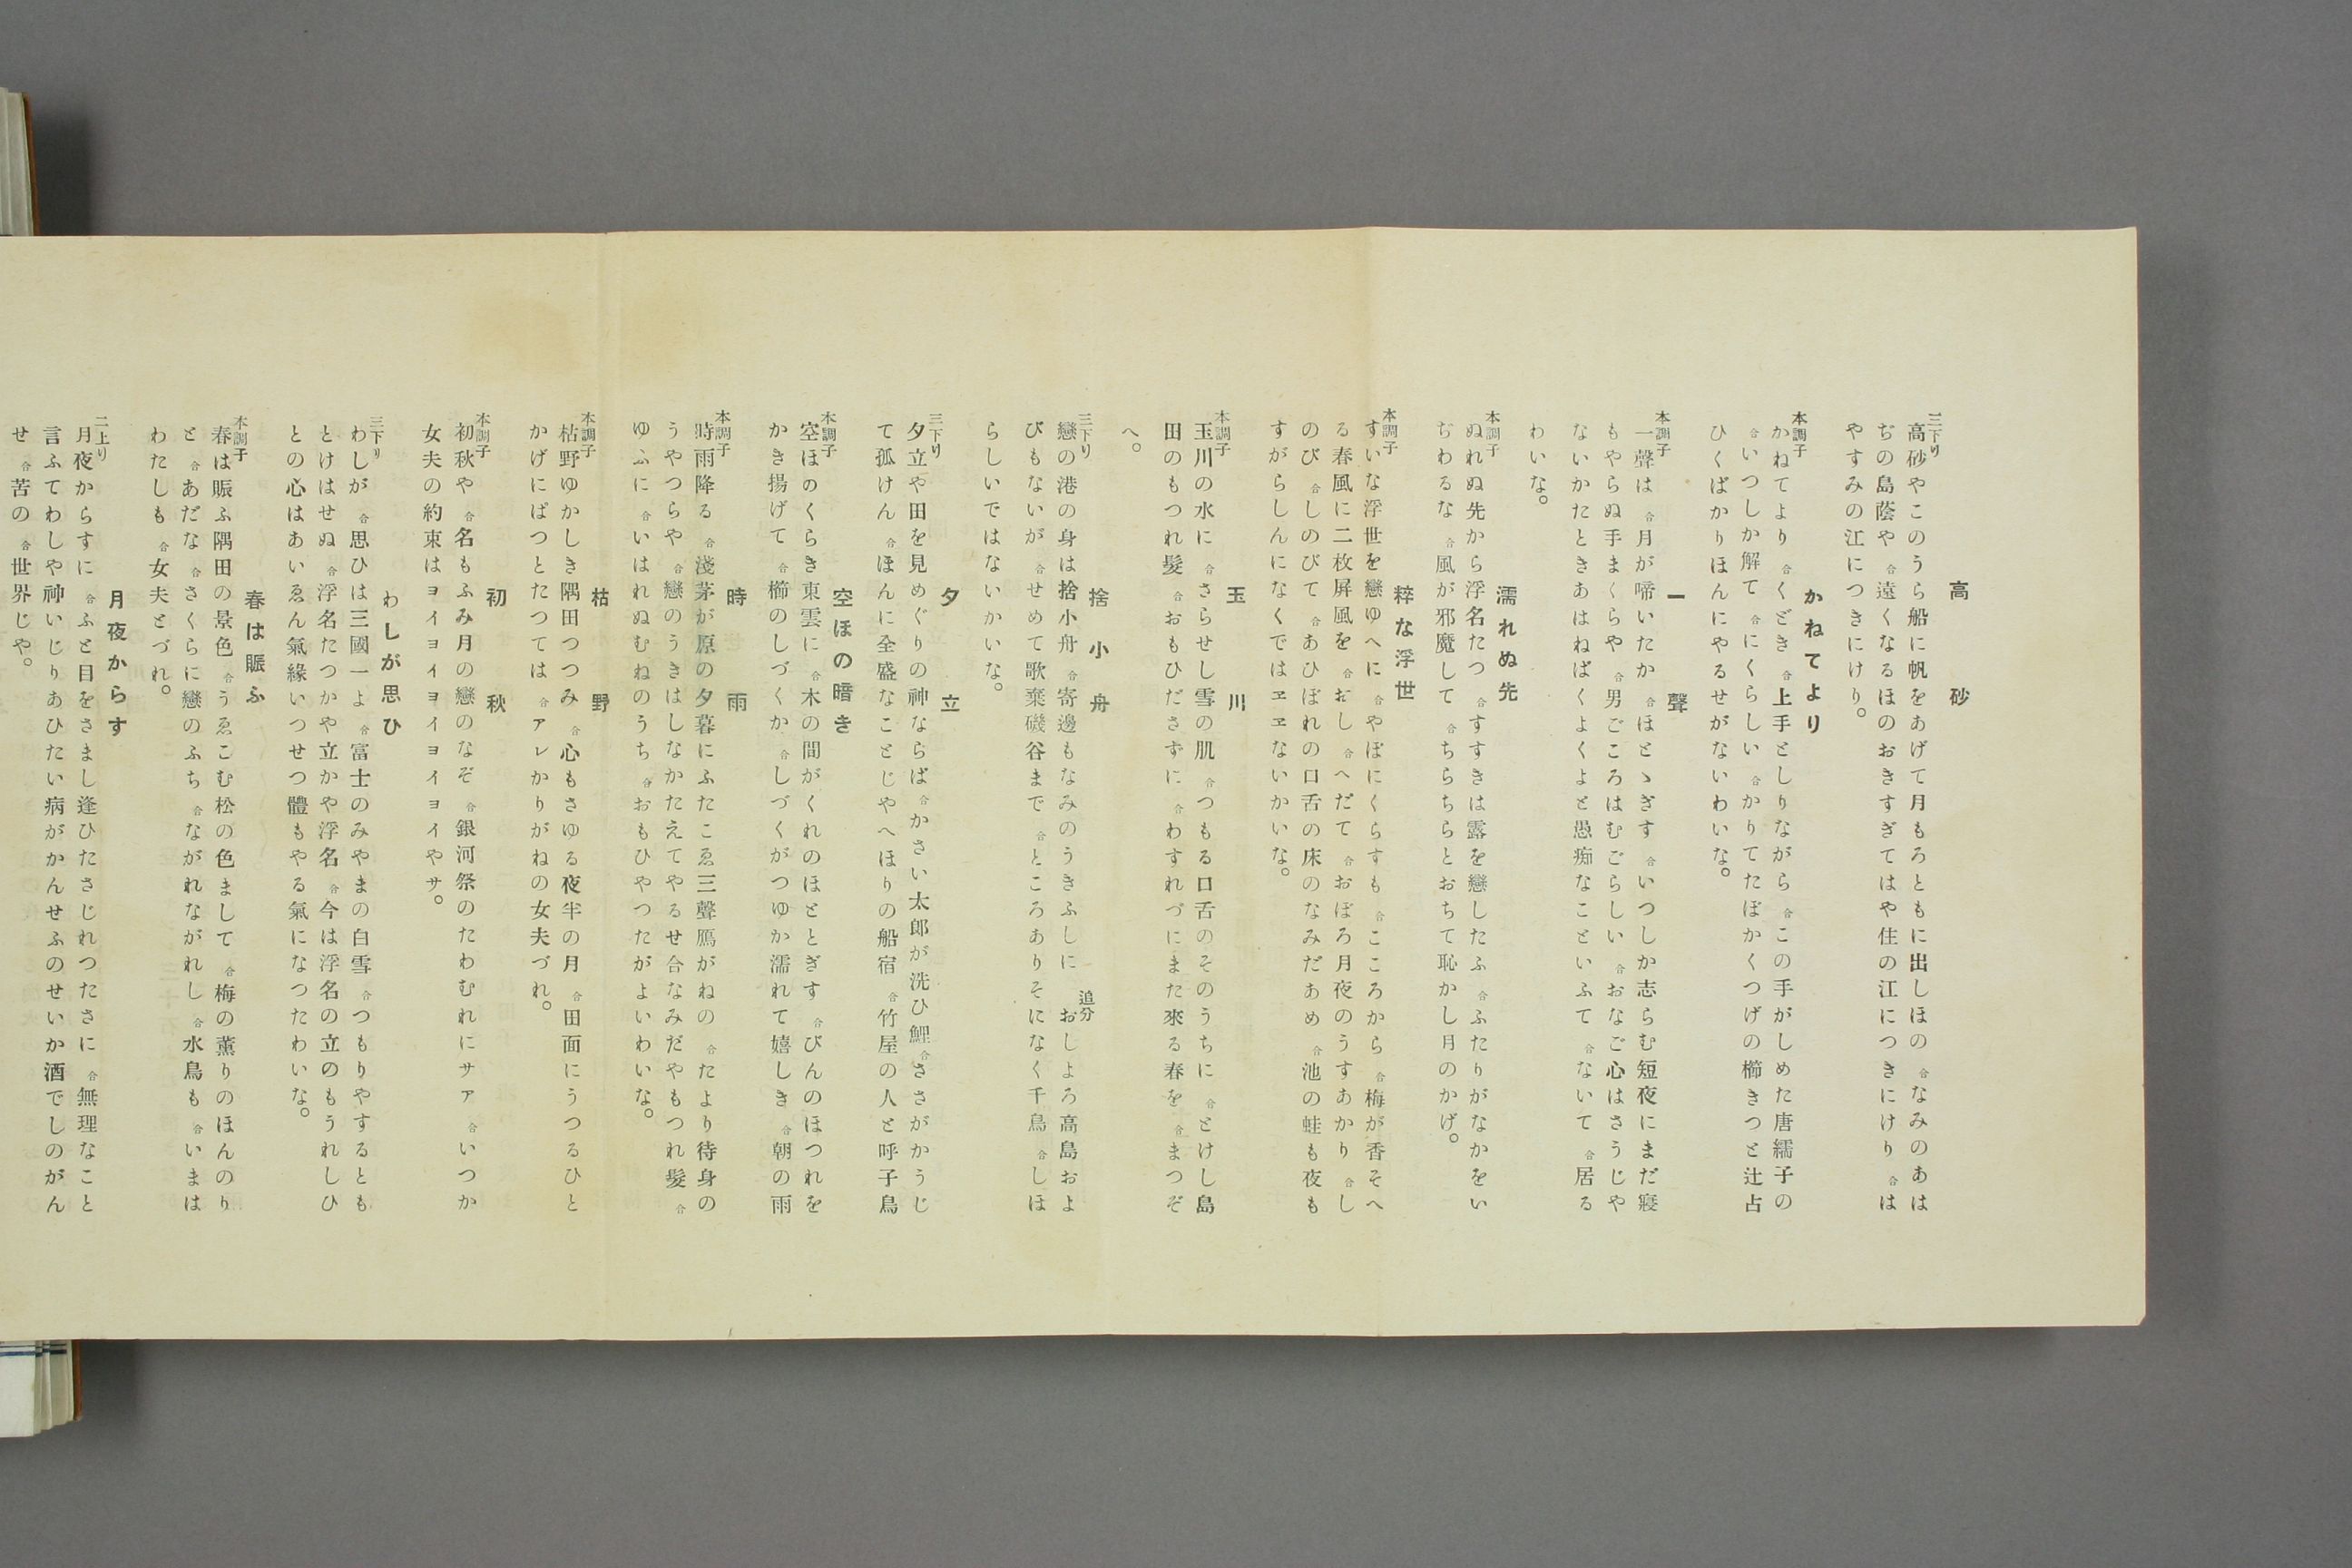 高砂
三下り
高砂やこのうら船に帆をあげて月もろともに出しほの 合 なみのあは
ぢの島蔭や 合 遠くなるほのおきすぎてはや住の江につきにけり 合 は
やすみの江につきにけり。
かねてより
本調子
かねてより 合 くどき 合 上手としりながら 合 この手がしめた唐繻子の
合 いつしか解て 合 にくらしい 合 かりてたぼかくつげの櫛きつと辻占
ひくばかりほんにやるせがないわいな。
一聲
本調子
一聲は 合 月が啼いたか 合 ほとゝぎす 合 いつしか志らむ短夜にまだ寢
もやらぬ手まくらや 合 男ごころはむごらしい 合 おなご心はさうじや
ないかたときあはねばくよくよと愚痴なこといふて 合 ないて 合 居る
わいな。
濡れぬ先
本調子
ぬれぬ先から浮名たつ 合 すすきは露を戀したふ 合 ふたりがなかをい
ぢわるな 合 風が邪魔して 合 ちらちらとおちて恥かし月のかげ。
粹な浮世
本調子
すいな浮世を戀ゆへに 合 やぼにくらすも 合 こころから 合 梅が香そへ
る春風に二枚屏風を 合 おし 合 へだて 合 おぼろ月夜のうすあかり 合 し
のび 合 しのびて 合 あひぼれの口舌の床のなみだあめ 合 池の蛙も夜も
すがらしんになくではヱヱないかいな。
玉川
本調子
玉川の水に 合 さらせし雪の肌 合 つもる口舌のそのうちに 合 とけし島
田のもつれ髮 合 おもひださずに 合 わすれづにまた來る春を 合 まつぞ
へ。
捨小舟
三下り
戀の港の身は捨小舟 合 寄邊もなみのうきふしに 追分 おしよろ高島およ
びもないが 合 せめて歌棄磯谷まで 合 ところありそになく千鳥 合 しほ
らしいではないかいな。
夕立
三下り
夕立や田を見めぐりの神ならば 合 かさい太郎が洗ひ鯉 合 ささがかうじ
て孤けん 合 ほんに全盛なことじやへほりの船宿 合 竹屋の人と呼子鳥
空ほの暗き
本調子
空ほのくらき東雲に 合 木の間がくれのほととぎす 合 びんのほつれを
かき揚げて 合 櫛のしづくか 合 しづくがつゆか濡れて嬉しき 合 朝の雨
時雨
本調子
時雨降る 合 淺茅が原の夕暮にふたこゑ三聲鴈がねの 合 たより待身の
うやつらや 合 戀のうきはしなかたえてやるせ合なみだやもつれ髮 合
ゆふに 合 いはれぬむねのうち 合 おもひやつたがよいわいな。
枯野
本調子
枯野ゆかしき隅田つつみ 合 心もさゆる夜半の月 合 田面にうつるひと
かげにぱつとたつては 合 アレかりがねの女夫づれ。
初秋
本調子
初秋や 合 名もふみ月の戀のなぞ 合 銀河祭のたわむれにサァ 合 いつか
女夫の約束はヨイヨイヨイヨイヨイやサ。
わしが思ひ
三下り
わしが 合 思ひは三國一よ 合 富士のみやまの白雪 合 つもりやするとも
とけはせぬ 合 浮名たつかや立かや浮名 合 今は浮名の立のもうれしひ
との心はあいゑん氣緣いつせつ體もやる氣になつたわいな。
春は賑ふ
本調子
春は賑ふ隅田の景色 合 うゑこむ松の色まして 合 梅の薫りのほんのり
と 合 あだな 合 さくらに戀のふち 合 ながれながれし 合 水鳥も 合 いまは
わたしも 合 女夫とづれ。
月夜からす
二上り
月夜からすに 合 ふと目をさまし逢ひたさじれつたさに 合 無理なこと
言ふてわしや神いじりあひたい病がかんせふのせいか酒でしのがん
せ 合 苦の 合 世界じや。